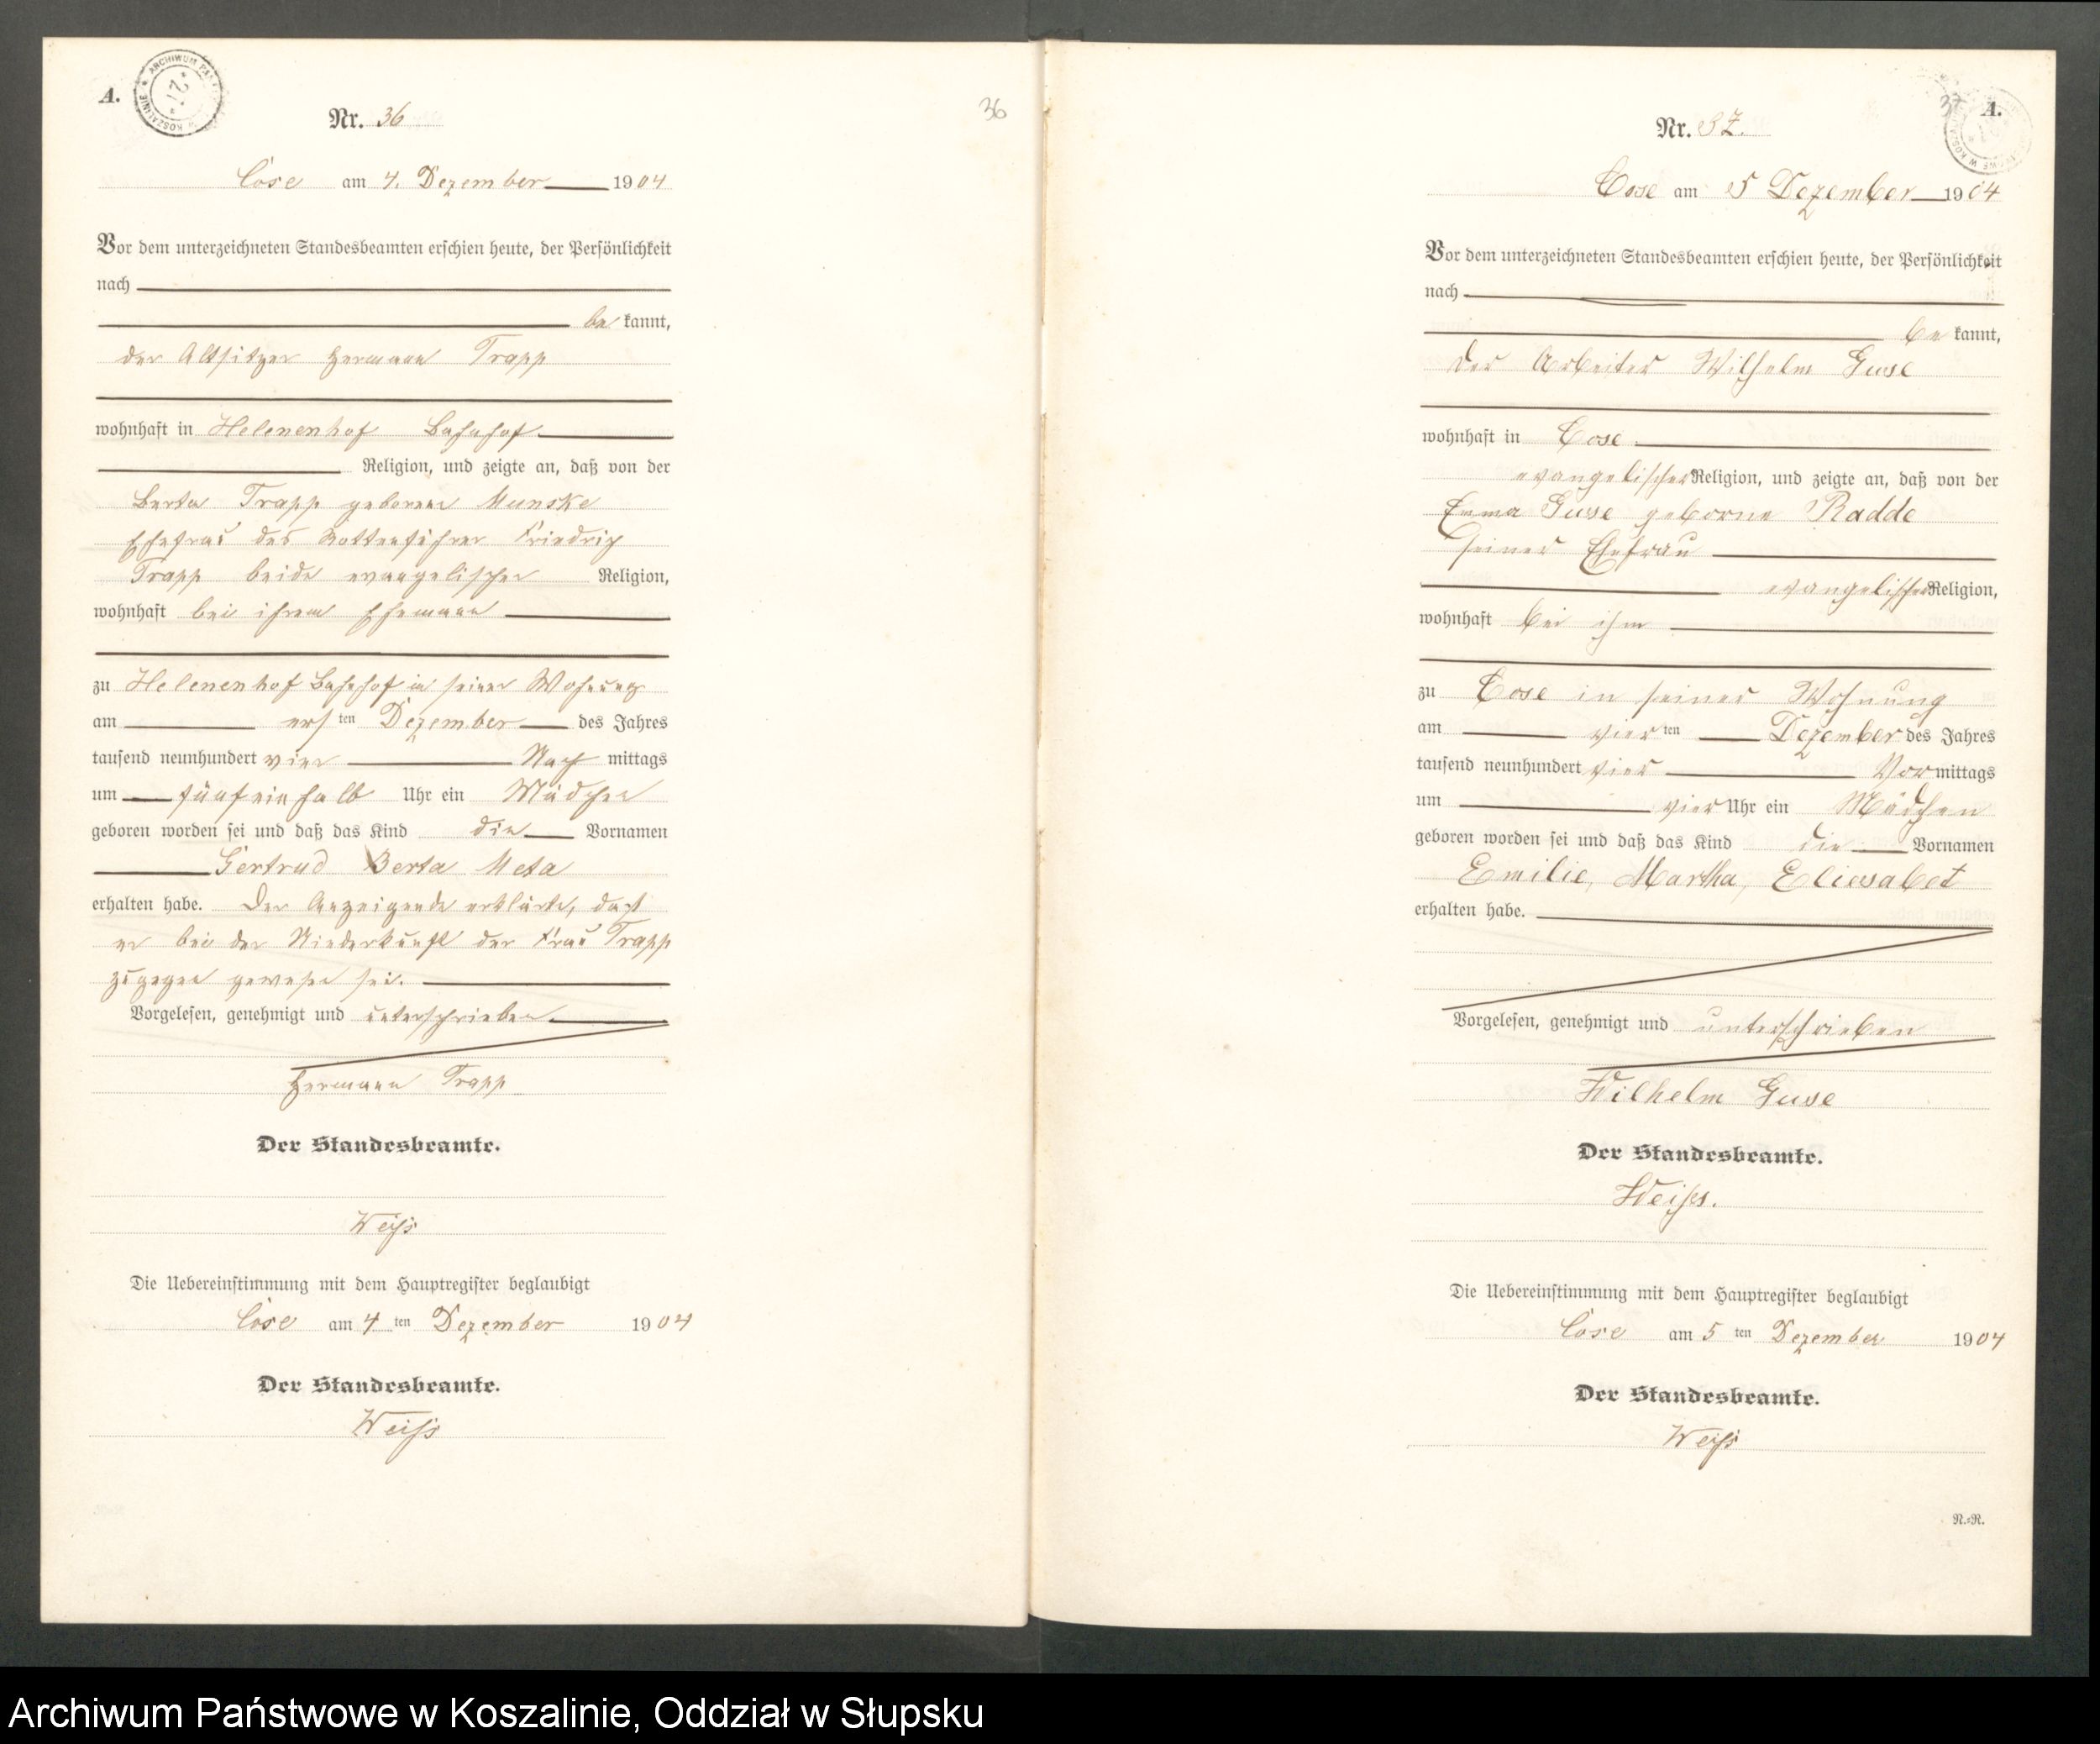 A.
ARCHIWUM PAŃ
W KOSZALINIE
* 27 *
Nr. 36
Cose am 4. Dezember 1904
Vor dem unterzeichneten Standesbeamten erschien heute, der Persönlichkeit
nach
be kannt,
der Altsitzer Hermann Trapp
wohnhaft in Helenenhof Bahnhof
Religion, und zeigte an, daß von der
Berta Trapp geborene Munske
Ehefrau des Rottenführer Friedrich
Trapp beide evangelischer Religion,
wohnhaft bei ihrem Ehemann
zu Helenenhof Bahnhof in seiner Wohnung
am ersten Dezember des Jahres
tausend neunhundert vier Nachmittags
um fünfeinhalb Uhr ein Mädchen
geboren worden sei und daß das Kind die Vornamen
Gertrud Berta Meta
erhalten habe. Der Anzeigende erklärte, daß
er bei der Niederkunft der Frau Trapp
zugegen gewesen sei.
Vorgelesen, genehmigt und unterschrieben
Hermann Trapp
Der Standesbeamte.
Weiß
Die Uebereinstimmung mit dem Hauptregister beglaubigt
Cose am 4 ten Dezember 1904
Der Standesbeamte.
Weiß
36
37 A.
Nr. 37.
Cose am 5 Dezember 1904
Vor dem unterzeichneten Standesbeamten erschien heute, der Persönlichkeit
nach
be kannt,
der Arbeiter Wilhelm Guse
wohnhaft in Cose
evangelischer Religion, und zeigte an, daß von der
Emma Guse geborne Radde
seiner Ehefrau
evangelischer Religion,
wohnhaft bei ihm
zu Cose in seiner Wohnung
am vierten Dezember des Jahres
tausend neunhundert vier Vormittags
um vier Uhr ein Mädchen
geboren worden sei und daß das Kind die Vornamen
Emilie, Martha, Eliesabet
erhalten habe.
Vorgelesen, genehmigt und unterschrieben
Wilhelm Guse
Der Standesbeamte.
Weiß.
Die Uebereinstimmung mit dem Hauptregister beglaubigt
Cose am 5 ten Dezember 1904
Der Standesbeamte.
Weiß
N.=R.
Archiwum Państwowe w Koszalinie, Oddział w Słupsku